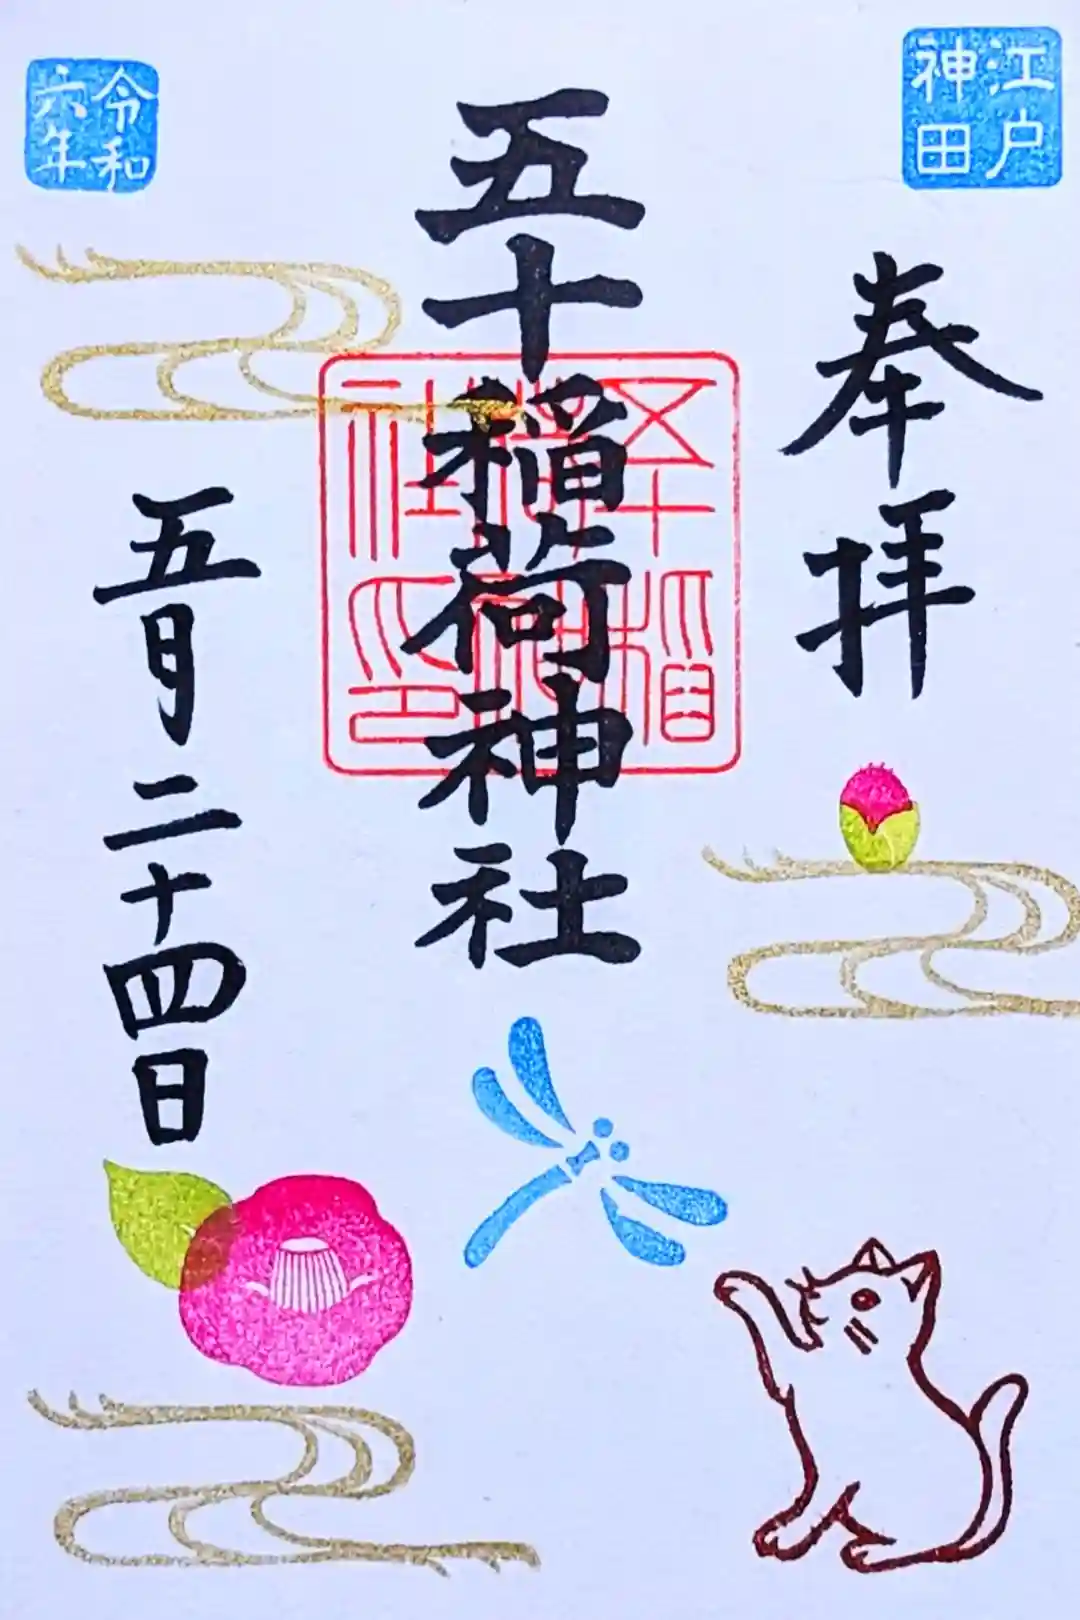 江戸
神田
奉拝
五十稲荷神社
五十稲
荷神
社印
令和
六年
五月二十四日